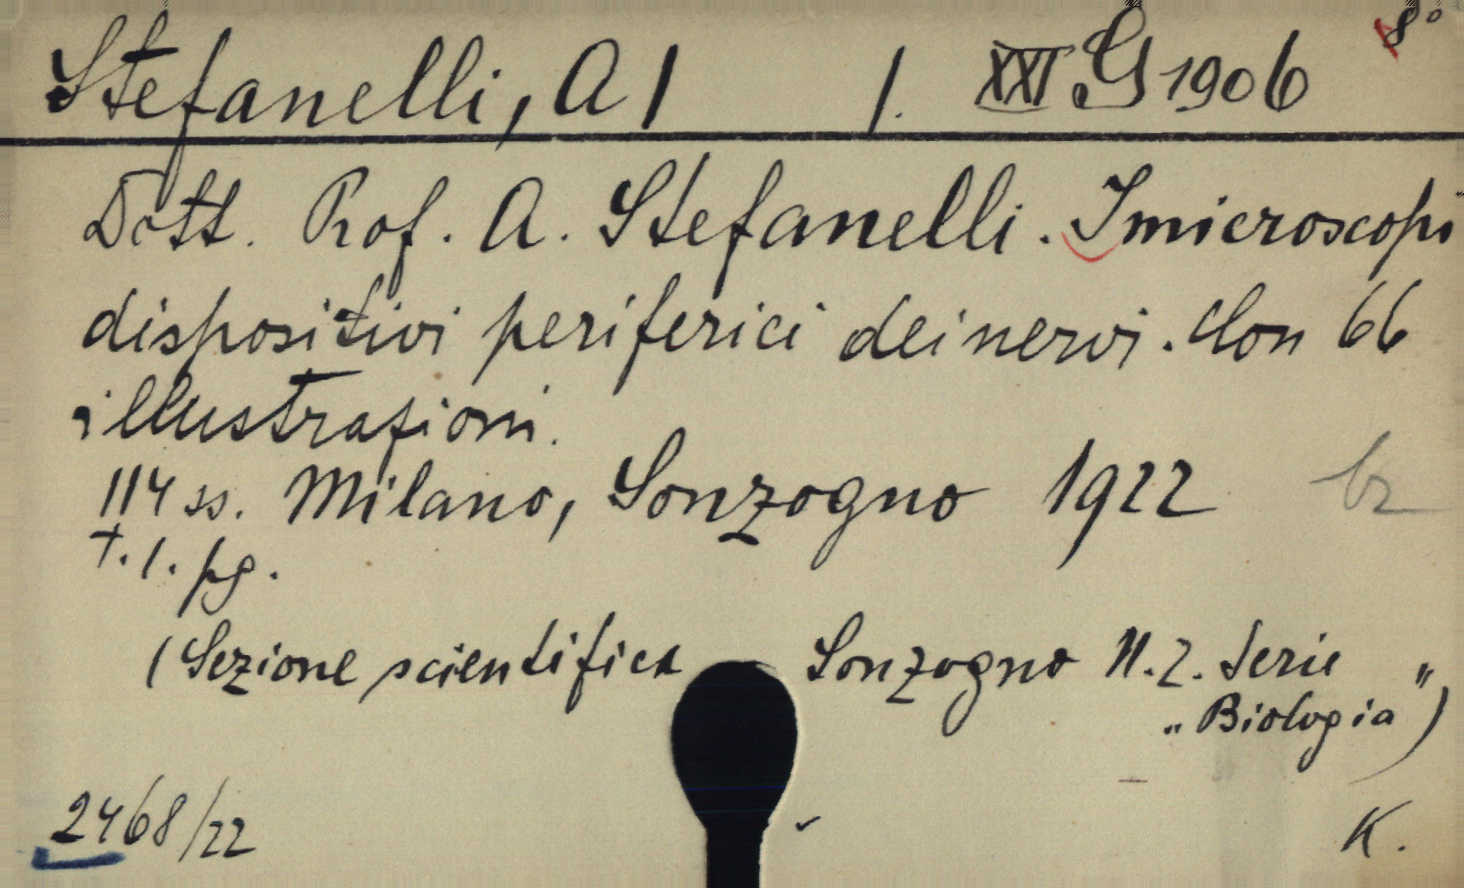 Stefanelli, A | 1. XXI G 1906 8°
Dott. Prof. A. Stefanelli. I microscopi
dispositivi periferici dei nervi. Con 66
illustrazioni.
114 ss. Milano, Sonzogno 1922 br
+. 1. pg.
(Sezione scientifica Sonzogno N. 2. Serie „
„Biologia")
2468/22 K.